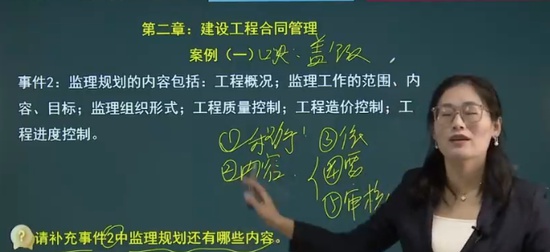 第二章：建设工程合同管理
案例（一）
事件2：监理规划的内容包括：工程概况；监理工作的范围、内
容、目标；监理组织形式；工程质量控制；工程造价控制；工
程进度控制。
② 内容
④ 需
⑤ 审核
请补充事件2中监理规划还有哪些内容。